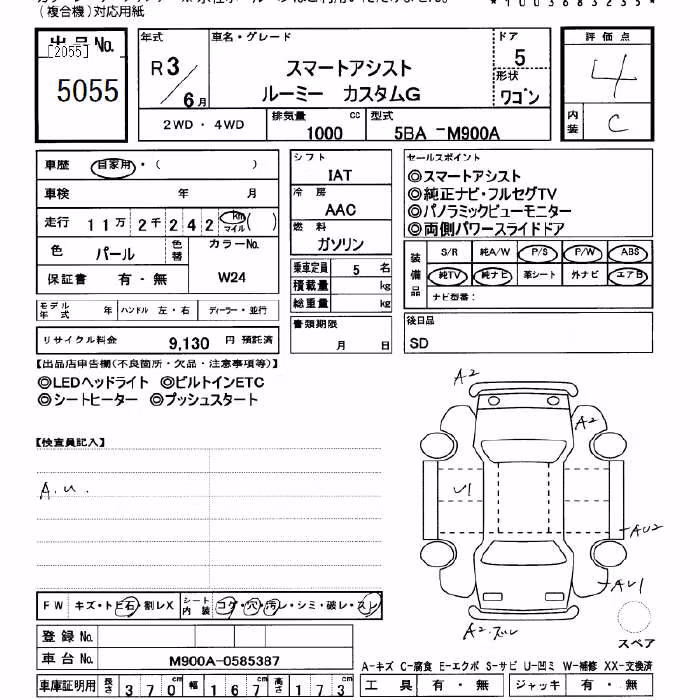 (複合機)対応用紙
*1003683235*
出品No.
[2055]
5055
年式
R 3
6 月
車名・グレード
スマートアシスト
ルーミー カスタムG
ドア
5
形状
ワゴン
評価点
4
内装
C
2WD・4WD
排気量
1000
cc
型式
5BA -M900A
車歴
自家用・( )
車検
年 月
走行
11万2千242
km
マイル
( )
色
パール
色替
カラーNo.
W24
保証書
有・無
モデル年式
年
ハンドル 左・右
ディーラー・並行
リサイクル料金 9,130 円 預託済
シフト
IAT
冷房
AAC
燃料
ガソリン
乗車定員 5 名
積載量 kg
総重量 kg
書類期限
月 日
セールスポイント
◎スマートアシスト
◎純正ナビ・フルセグTV
◎パノラミックビューモニター
◎両側パワースライドドア
装備品
S/R 純A/W P/S P/W ABS
純TV 純ナビ 革シート 外ナビ エアB
ナビ型番:
後日品
SD
【出品店申告欄(不良箇所・欠品・注意事項等)】
◎LEDヘッドライト ◎ビルトインETC
◎シートヒーター ◎プッシュスタート
【検査員記入】
A.U.
A2
A2
U1
AU2
AU1
A2.スレ
スペア
FW キズ・トビ石・割レX
シート内装 コゲ・穴・汚レ・シミ・破レ・スレ
登録No.
車台No. M900A-0585387
車庫証明用 長さ 370 cm 幅 167 cm 高さ 173 cm
A-キズ C-腐食 E-エクボ S-サビ U-凹ミ W-補修 XX-交換済
工具 有・無 ジャッキ 有・無